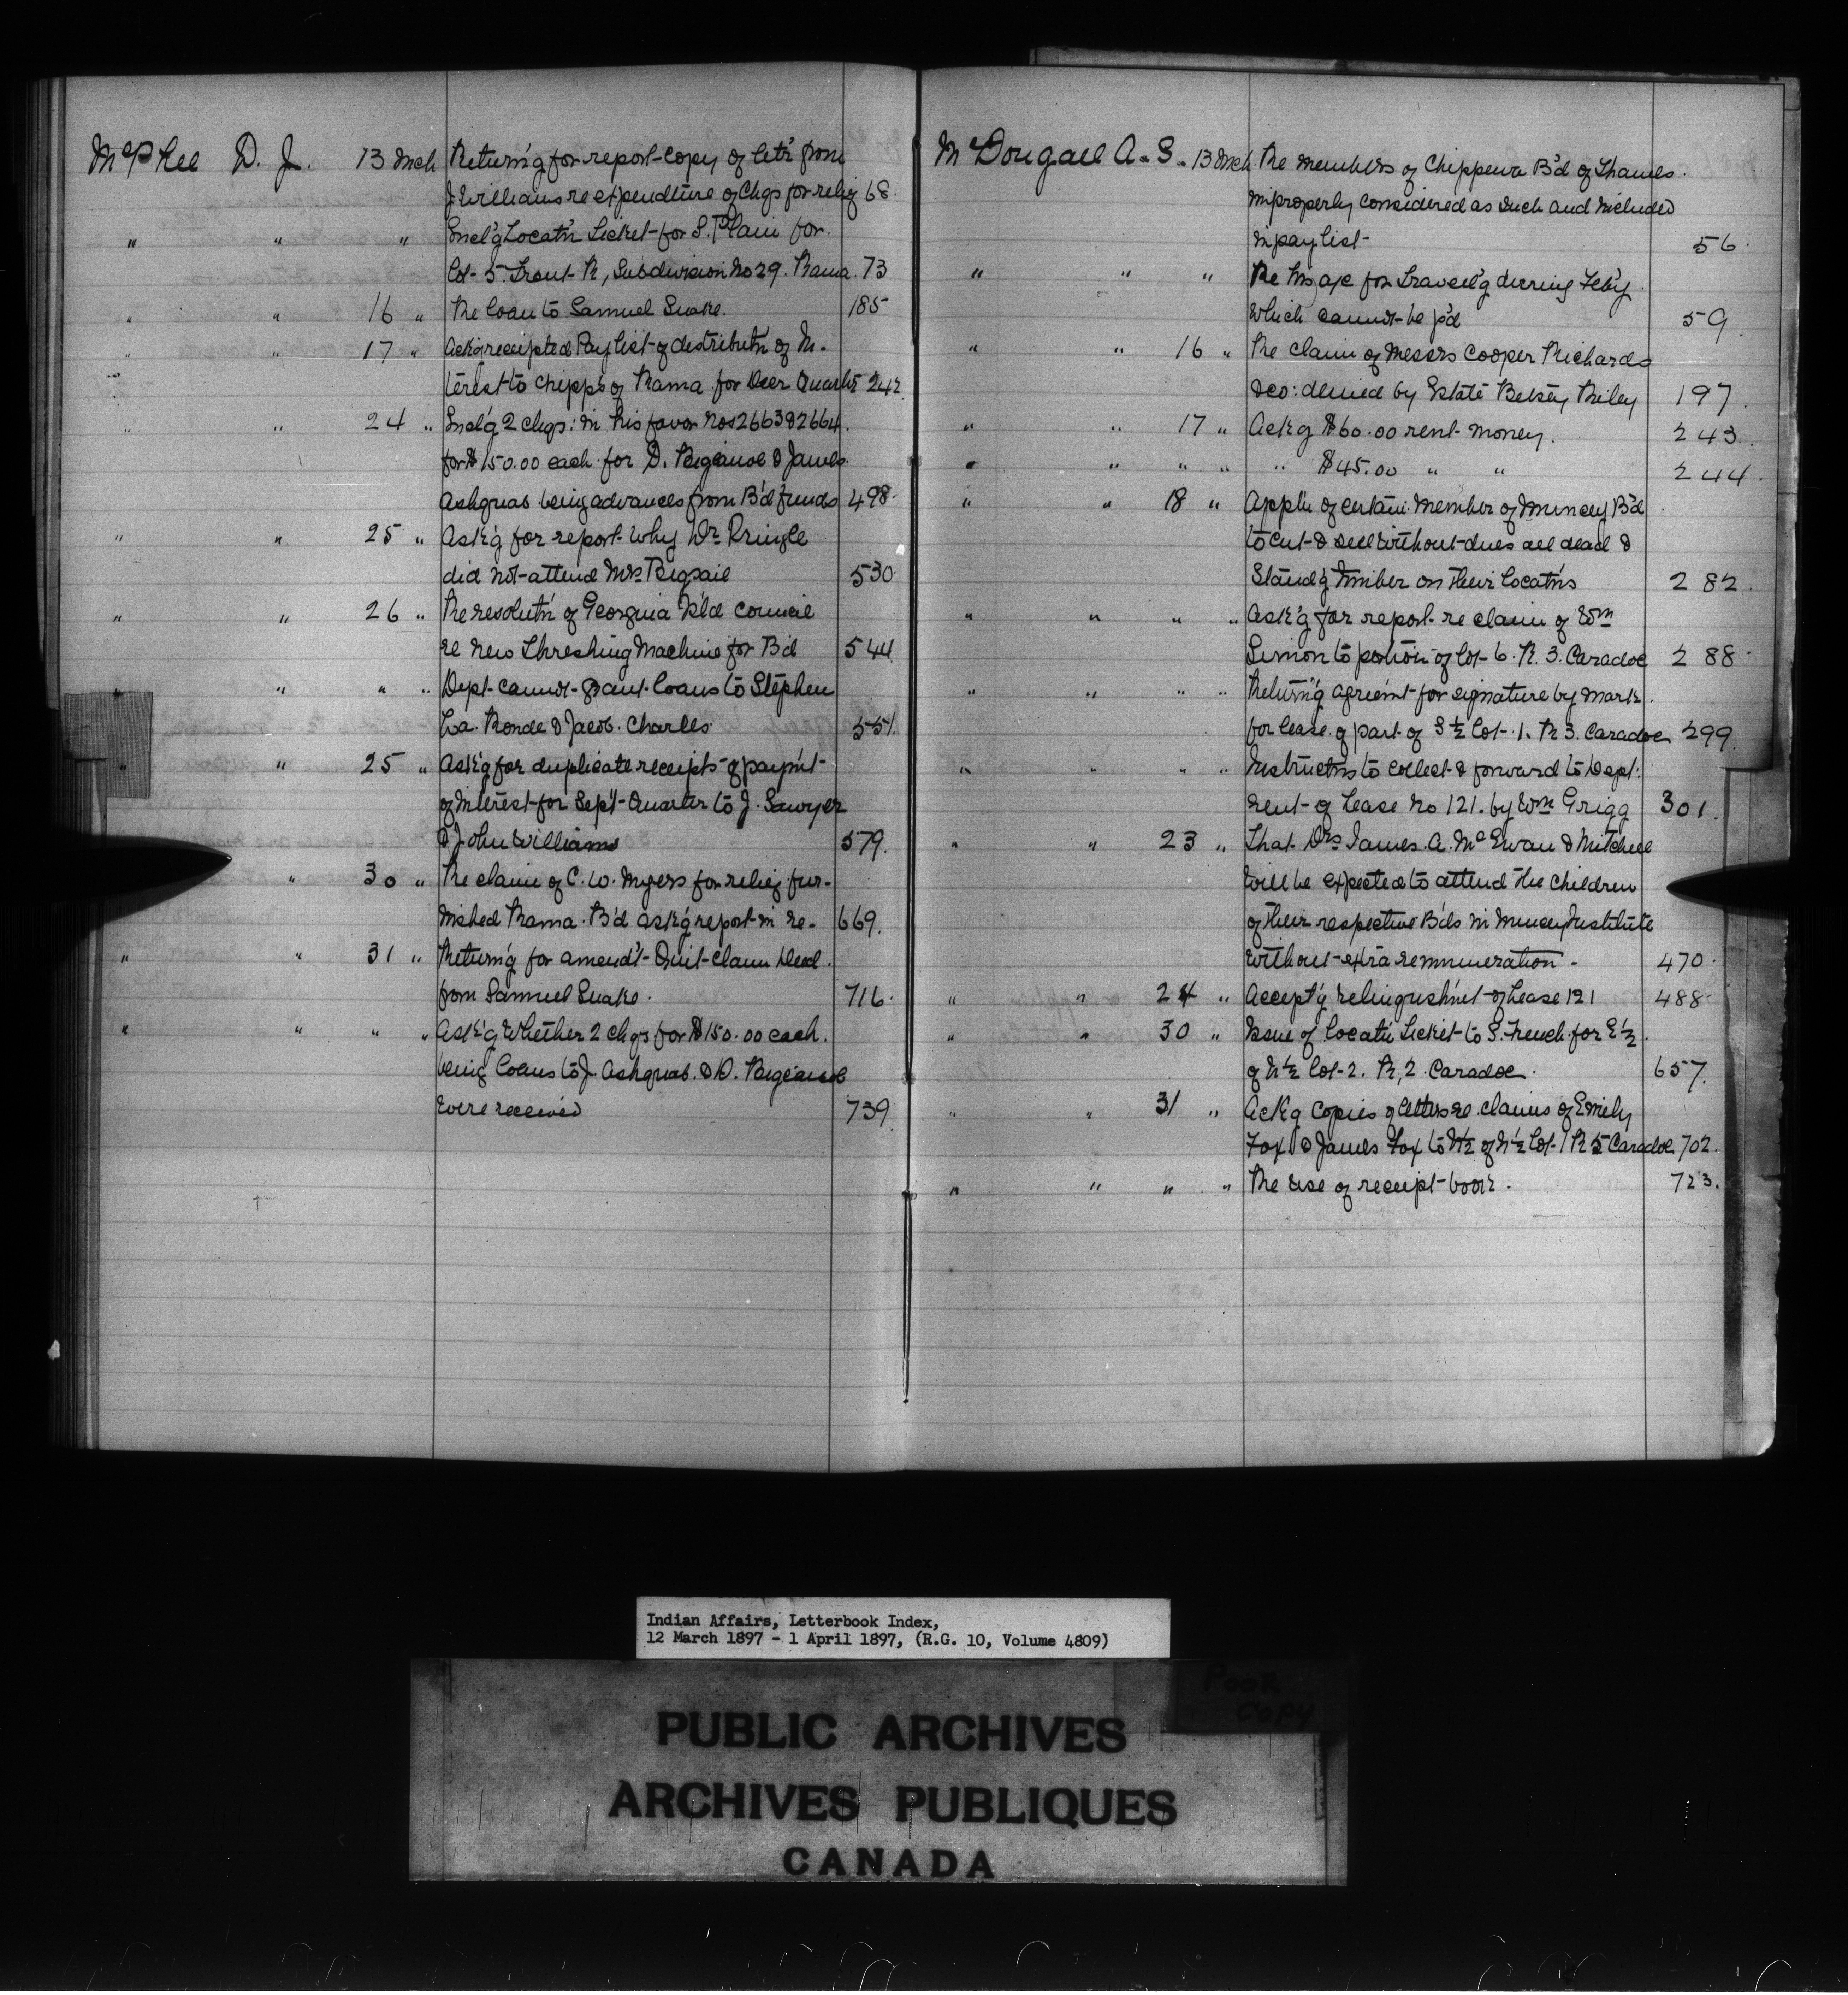 McPhee D. J. 13 Mch Return'g for report copy of let'r from
J Williams re expenditure of Chqs for relief 68.
" " " Encl'g Locat'n Ticket for S. Plain for
Lot 5. Front R, Subdivision No 29. Rama. 73
" " 16 " Re loan to Samuel Snake. 185
" " 17 " Ack'g receipted Paylist of distributn of In-
terest to Chipp's of Rama for Decr Quarter 242
" " 24 " Encl'g 2 chqs: in his favor Nos 2663 & 2664
for $150.00 each for D. Bigcanoe & James
Ashquab being advances from B'd funds 498.
" " 25 " Ask'g for report why Dr. Pringle
did not attend Mrs Bigsail 530.
" " 26 " Re resolut'n of Georgina Is'l'd Council
re new Threshing Machine for B'd 544
" " " " Dept. cannot grant loans to Stephen
La Ronde & Jacob Charles 551.
" " 25 " Ask'g for duplicate receipts of paym't
of interest for Sept Quarter to J. Sawyer
& John Williams 579.
" 30 " Re claim of C. W. Myers for relief fur-
nished Rama B'd ask'g report in re- 669.
" " 31 " Return'g for amend't Quit-claim Deed
from Samuel Snake. 716.
" " " " Ask'g whether 2 chqs for $150.00 each.
being loans to J. Ashquab & D. Bigcanoe
were received 739.
McDougall A. S. 13 Mch Re members of Chippewa B'd of Thames
improperly considered as such and included
in pay list 56.
" " " Re his a/c for Travell'g during Feb'y
which cannot be p'd 59.
" " 16 " Re claim of Messrs Cooper Richards
&co: denied by Estate Betsey Riley 197.
" " 17 " Ack'g $60.00 rent money. 243.
" " " " " $45.00 " " 244.
" " 18 " Appl'n of certain member of Muncey B'd
to cut & sell without dues all dead &
Stand'g timber on their locat'ns 282.
" " " " Ask'g for report re claim of Wm
Simon to portion of Lot 6. R. 3. Caradoc 288
" " " " Return'g agreem't for signature by mark
for lease of part of S ½ Lot 1. R 3. Caradoc 299.
" " " " Instruct'ns to collect & forward to Dept:
rent of Lease No 121. by Wm Grigg 301.
" " 23 " That Drs James. A. McEwan & Mitchell
will be expected to attend the children
of their respective B'ds in Muncey Institute
without extra remuneration - 470.
" " 24 " Accept'g relinquishm't of Lease 121 488.
" " 30 " Issue of Locat'n Ticket to S. French for E ½
of N ½ Lot 2. R, 2. Caradoc. 657.
" " 31 " Ack'g copies of letters re claims of Emily
Fox & James Fox to N ½ of N ½ Lot 1 R 5 Caradoc 702.
" " " " Re use of receipt book. 723.
Indian Affairs, Letterbook Index,
12 March 1897 - 1 April 1897, (R.G. 10, Volume 4809)
Poor
Copy
PUBLIC ARCHIVES
ARCHIVES PUBLIQUES
CANADA